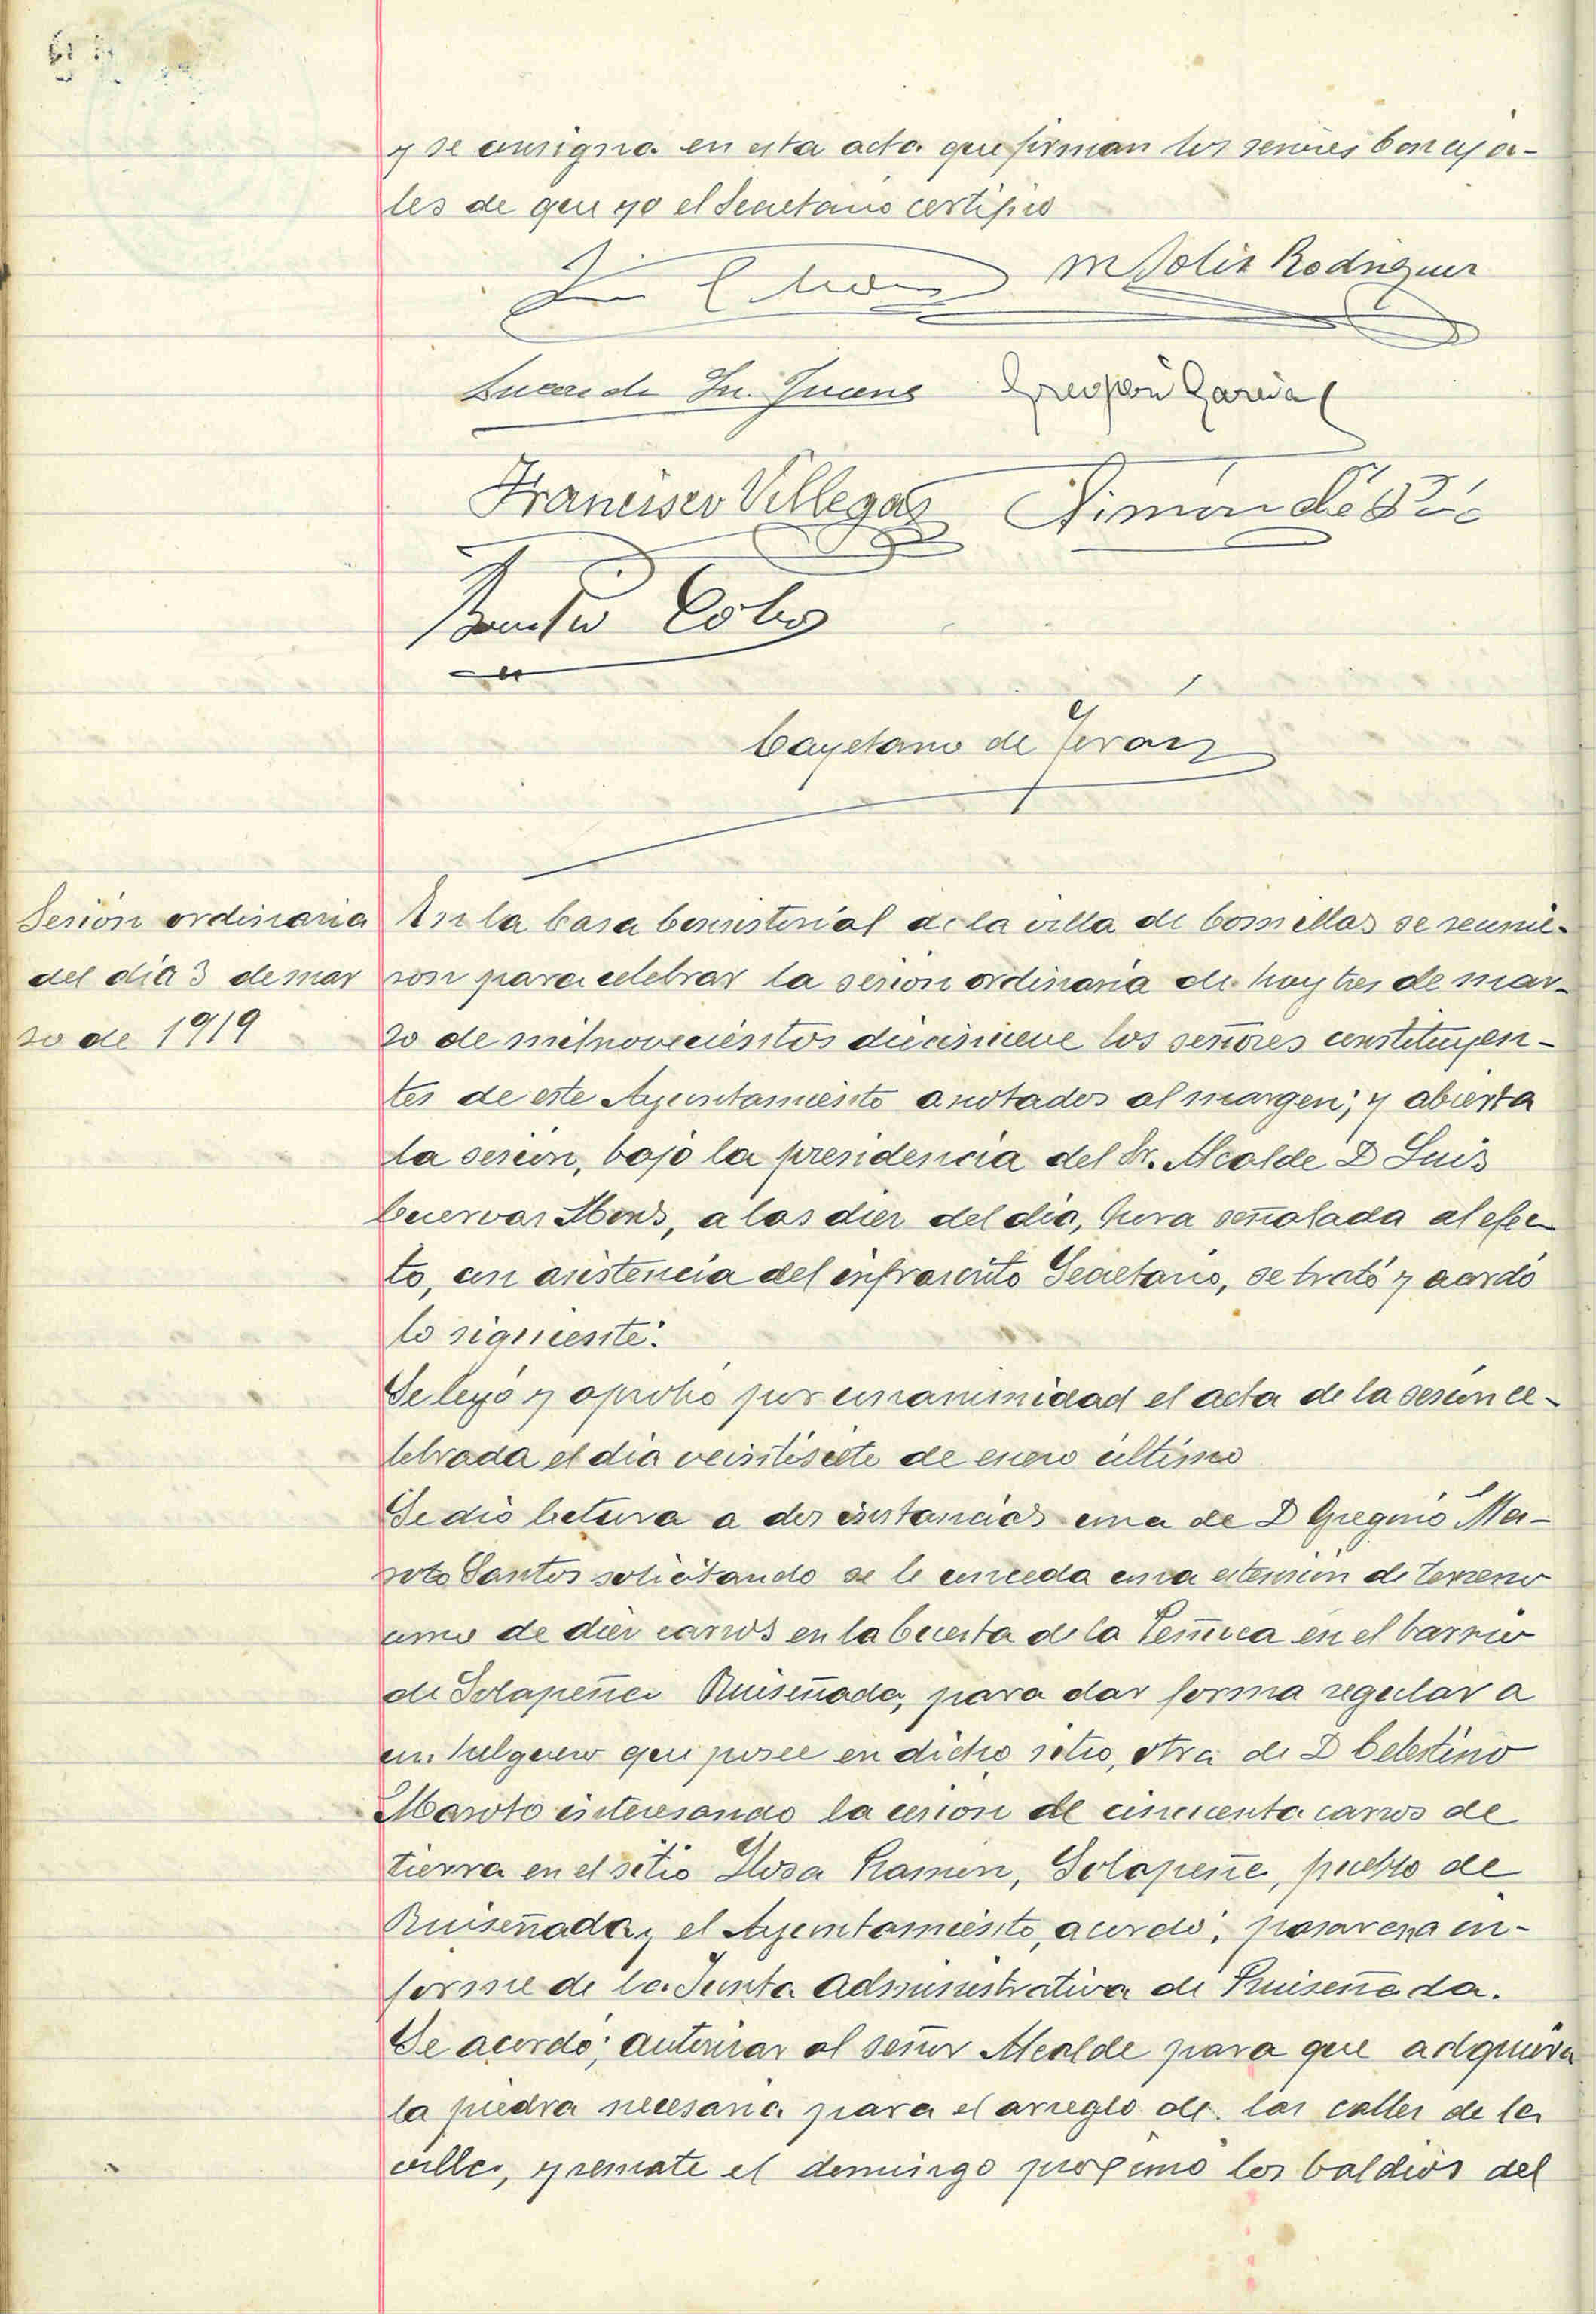 y se consigna en esta acta que firman los señores Conceja-
les de que yo el Secretario certifico
M Solis Rodriguez
Gregorio Garcia
Francisco Villegas Simón de
Benito Cobo
Cayetano de Terán
Sesión ordinaria
del día 3 de mar
zo de 1919
En la Casa Consistorial de la villa de Comillas se reunie-
ron para celebrar la sesion ordinaria de hoy tres de mar-
zo de mil novecientos diecinueve los señores constituyen-
tes de este Ayuntamiento anotados al margen; y abierta
la sesion, bajo la presidencia del Sr. Alcalde D Luis
Cuervas Mons, a las diez del dia, hora señalada al efec
to, con asistencia del infrascrito Secretario, se trató y acordó
lo siguiente:
Se leyó y aprobó por unanimidad el acta de la sesion ce-
lebrada el dia veintisiete de enero último
Se dió letura a dos instancias una de D Gregorio Ma-
roto Santos solicitando se le conceda una estensión de terreno
como de diez carros en la Cuesta de la Peñuca en el barrio
de Solapeña Ruiseñada, para dar forma regular a
un helguero que posee en dicho sitio, otra de D Celestino
Maroto interesando la cesion de cincuenta carros de
tierra en el sitio Llosa Ramón, Solapeña, pueblo de
Ruiseñada, el Ayuntamiento, acordó; pasaren a in-
forme de la Junta Administrativa de Ruiseñada.
Se acordó; autorizar al señor Alcalde para que adquiera
la piedra necesaria para el arreglo de las calles de la
villa, y remate el domingo proximo los baldios del